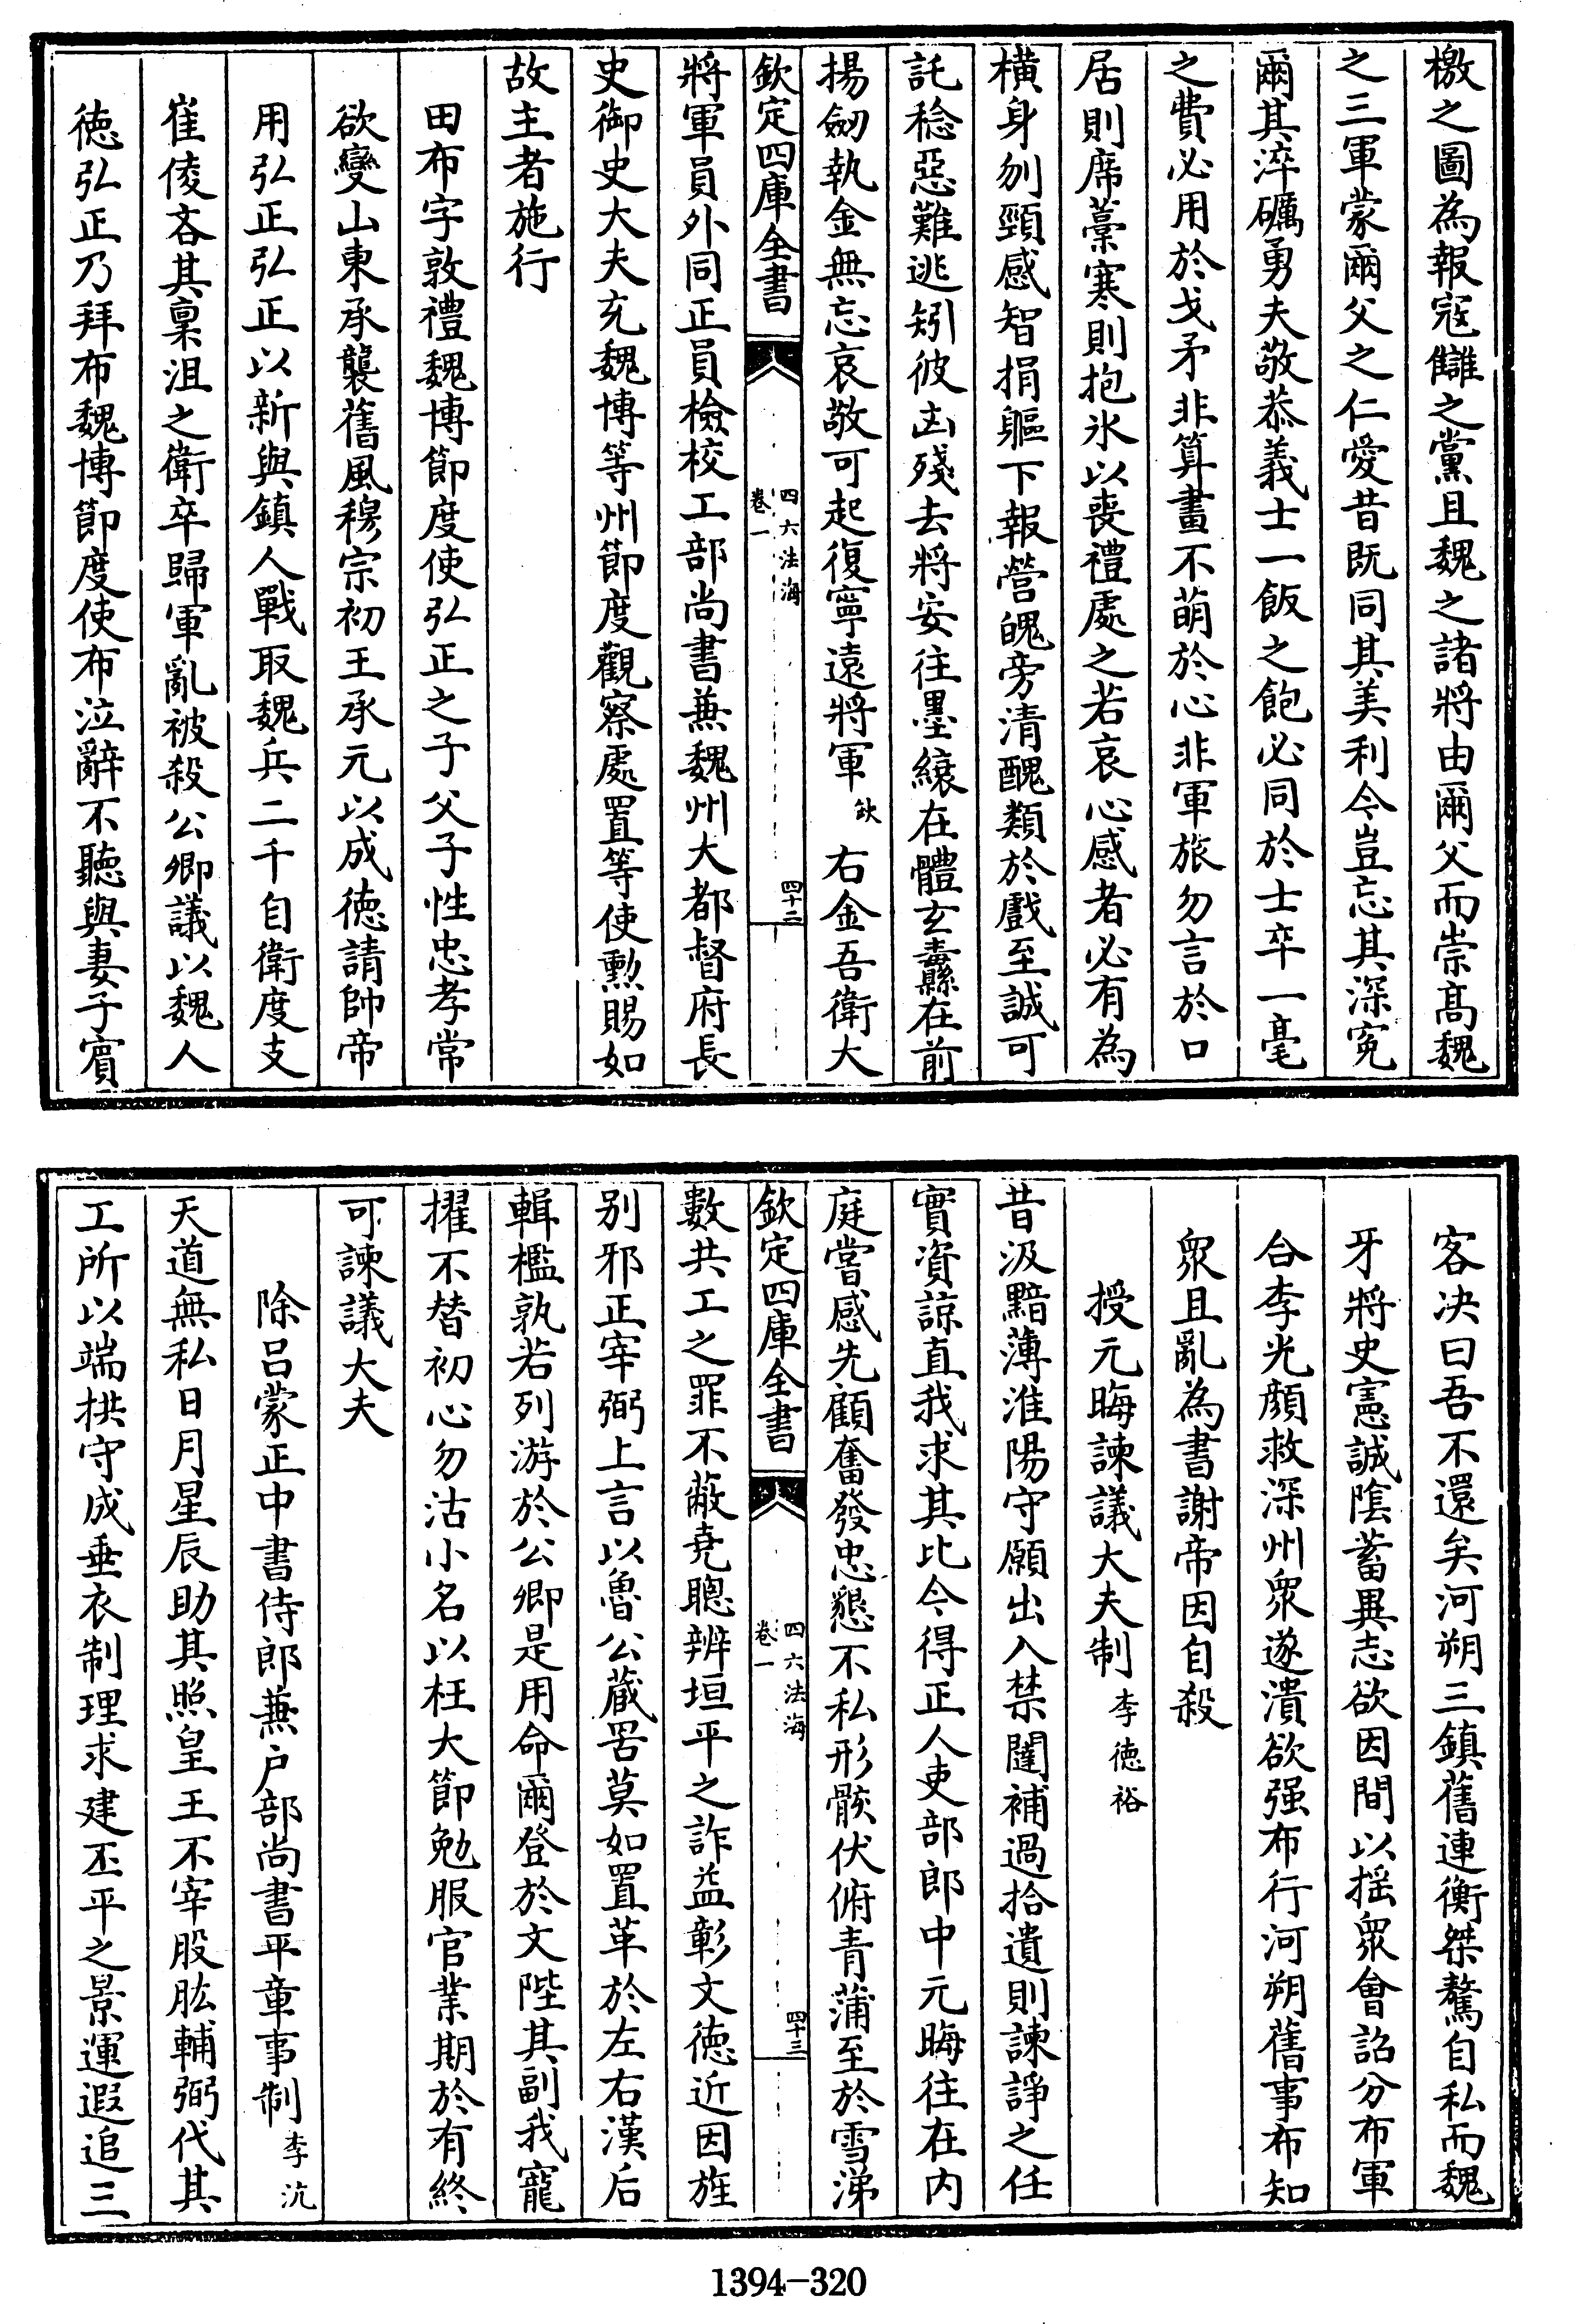 檄之圖為報寇讎之黨且魏之諸將由爾父而崇髙魏
之三軍蒙爾父之仁愛昔既同其美利今豈忘其深寃
爾其淬礪勇夫敬恭義士一飯之飽必同於士卒一毫
之費必用於戈矛非算畫不萌於心非軍旅勿言於口
居則席藁寒則抱氷以喪禮處之若哀心感者必有為
橫身刎頸感智捐軀下報營魄旁清醜類於戲至誠可
託稔惡難逃矧彼凶殘去將安往墨縗在體玄纛在前
揚劒執金無忘哀敬可起復寧遠將軍欽右金吾衛大
欽定四庫全書
四六法海
卷一
四十二
將軍員外同正員檢校工部尚書兼魏州大都督府長
史御史大夫充魏博等州節度觀察處置等使勲賜如
故主者施行
田布字敦禮魏博節度使弘正之子父子性忠孝常
欲變山東承襲舊風穆宗初王承元以成徳請帥帝
用弘正弘正以新與鎮人戰取魏兵二千自衛度支
崔倰吝其稟沮之衛卒歸軍亂被殺公卿議以魏人
徳弘正乃拜布魏博節度使布泣辭不聽與妻子賓
客决曰吾不還矣河朔三鎮舊連衡桀驁自私而魏
牙將史憲誠隂蓄異志欲因間以揺衆會詔分布軍
合李光顔救深州衆遂潰欲强布行河朔舊事布知
衆且亂為書謝帝因自殺
授元晦諫議大夫制 李徳裕
昔汲黯薄淮陽守願出入禁闥補過拾遺則諫諍之任
實資諒直我求其比今得正人吏部郎中元晦往在内
庭嘗感先顧奮發忠懇不私形骸伏俯青蒲至於雪涕
欽定四庫全書
四六法海
卷一
四十三
數共工之罪不蔽堯聰辨垣平之詐益彰文徳近因旌
别邪正宰弼上言以魯公蔵罟莫如置革於左右漢后
輯檻孰若列游於公卿是用命爾登於文陛其副我寵
擢不替初心勿沽小名以枉大節勉服官業期於有終
可諫議大夫
除吕蒙正中書侍郎兼户部尚書平章事制 李沆
天道無私日月星辰助其照皇王不宰股肱輔弼代其
工所以端拱守成垂衣制理求建丕平之景運遐追三
1394-320